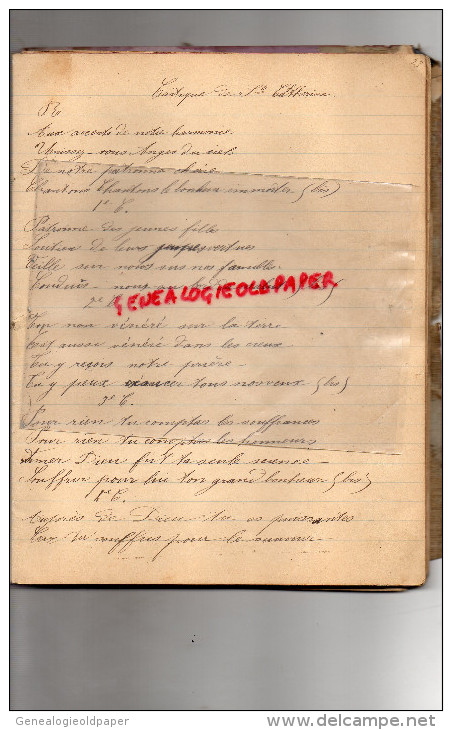 Cantique de Ste
R
Aux accords de notre harmonie
Unissez-vous Anges du ciel
De notre patronne chérie
Chantons Chantons le bonheur immortel (bis)
1er C.
Patronne des jeunes filles
Soutien de leurs vertus
Veille sur nous sur nos familles
Conduis-nous au (bis)
2e
GENEALOGIEOLDPAPER
Ton nom vénéré sur la terre
Est aussi vénéré dans les cieux
Tu y reçois notre prière
Tu y peux exaucer tous nos vœux (bis)
3e C.
Pour rien tu comptas les souffrances
Pour rien tu comptas les honneurs
Aimer Dieu fut ta seule science
Souffrir pour lui ton grand bonheur (bis)
4e C.
Auprès de Dieu tu es puissante
Car tu souffris pour le
Genealogieoldpaper
delcampe.net